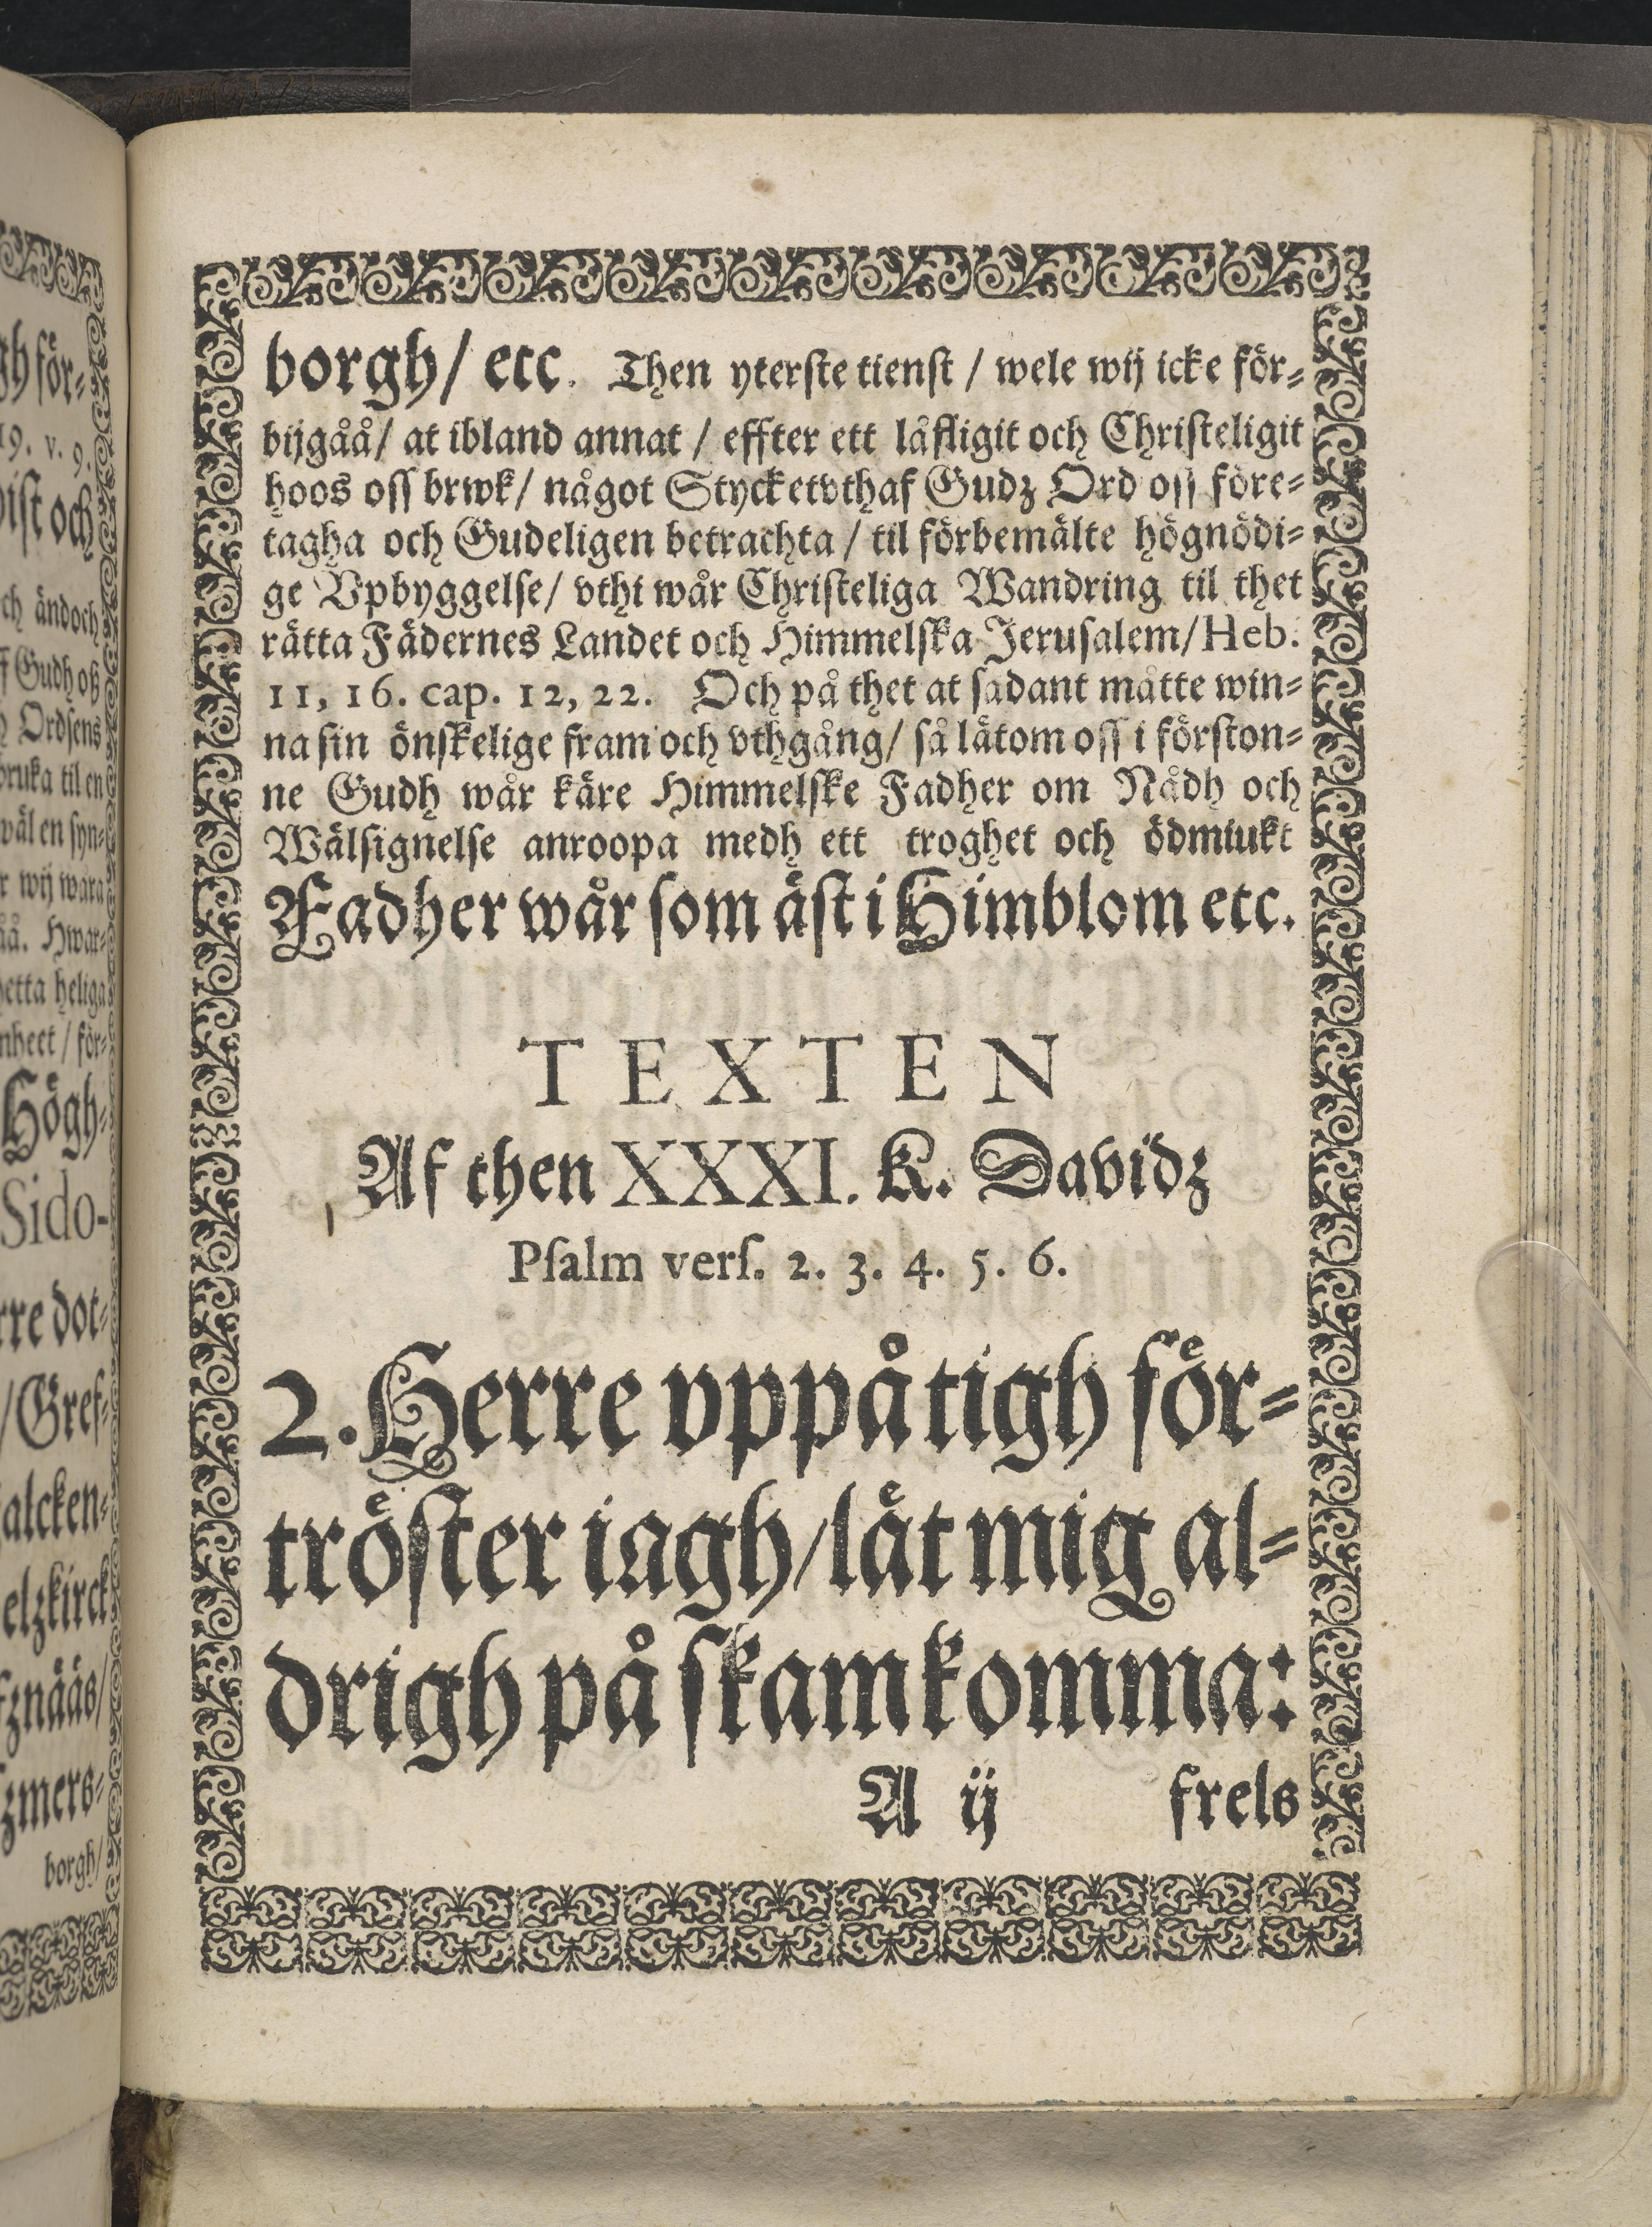 gh för-
19. v. 9.
ist och
ch ändoch
ff Gudh oß
h Ordsens
bruka til en
wäl en syn-
r wij wara
åå. Hwar-
hetta heliga
nheet / för-
Högh-
Sido-
rre dot-
/Gref-
alcken-
elzkirck
fznääs/
zmers-
borgh/
borgh/ etc. Then yterste tienst / wele wij icke för-
bijgåå/ at ibland annat / effter ett låfligit och Christeligit
hoos oss brwk/ något Stycket vthaf Gudz Ord oss före-
tagha och Gudeligen betrachta / til förbemälte högnödi-
ge Vpbyggelse/ vthi wår Christeliga Wandring til thet
rätta Fädernes Landet och Himmelska Jerusalem/ Heb.
11, 16. cap. 12, 22. Och på thet at sådant måtte win-
na sin önskelige fram och vthgång/ så lätom oss i förston-
ne Gudh wår käre Himmelske Fadher om Nådh och
Wälsignelse anroopa medh ett troghet och ödmiukt
Fadher wår som äst i Himblom etc.
TEXTEN
Af then XXXI. K. Davidz
Psalm vers. 2. 3. 4. 5. 6.
2. Herre vppå tigh för-
tröster iagh/ låt mig al-
drigh på skam komma:
A ij frels